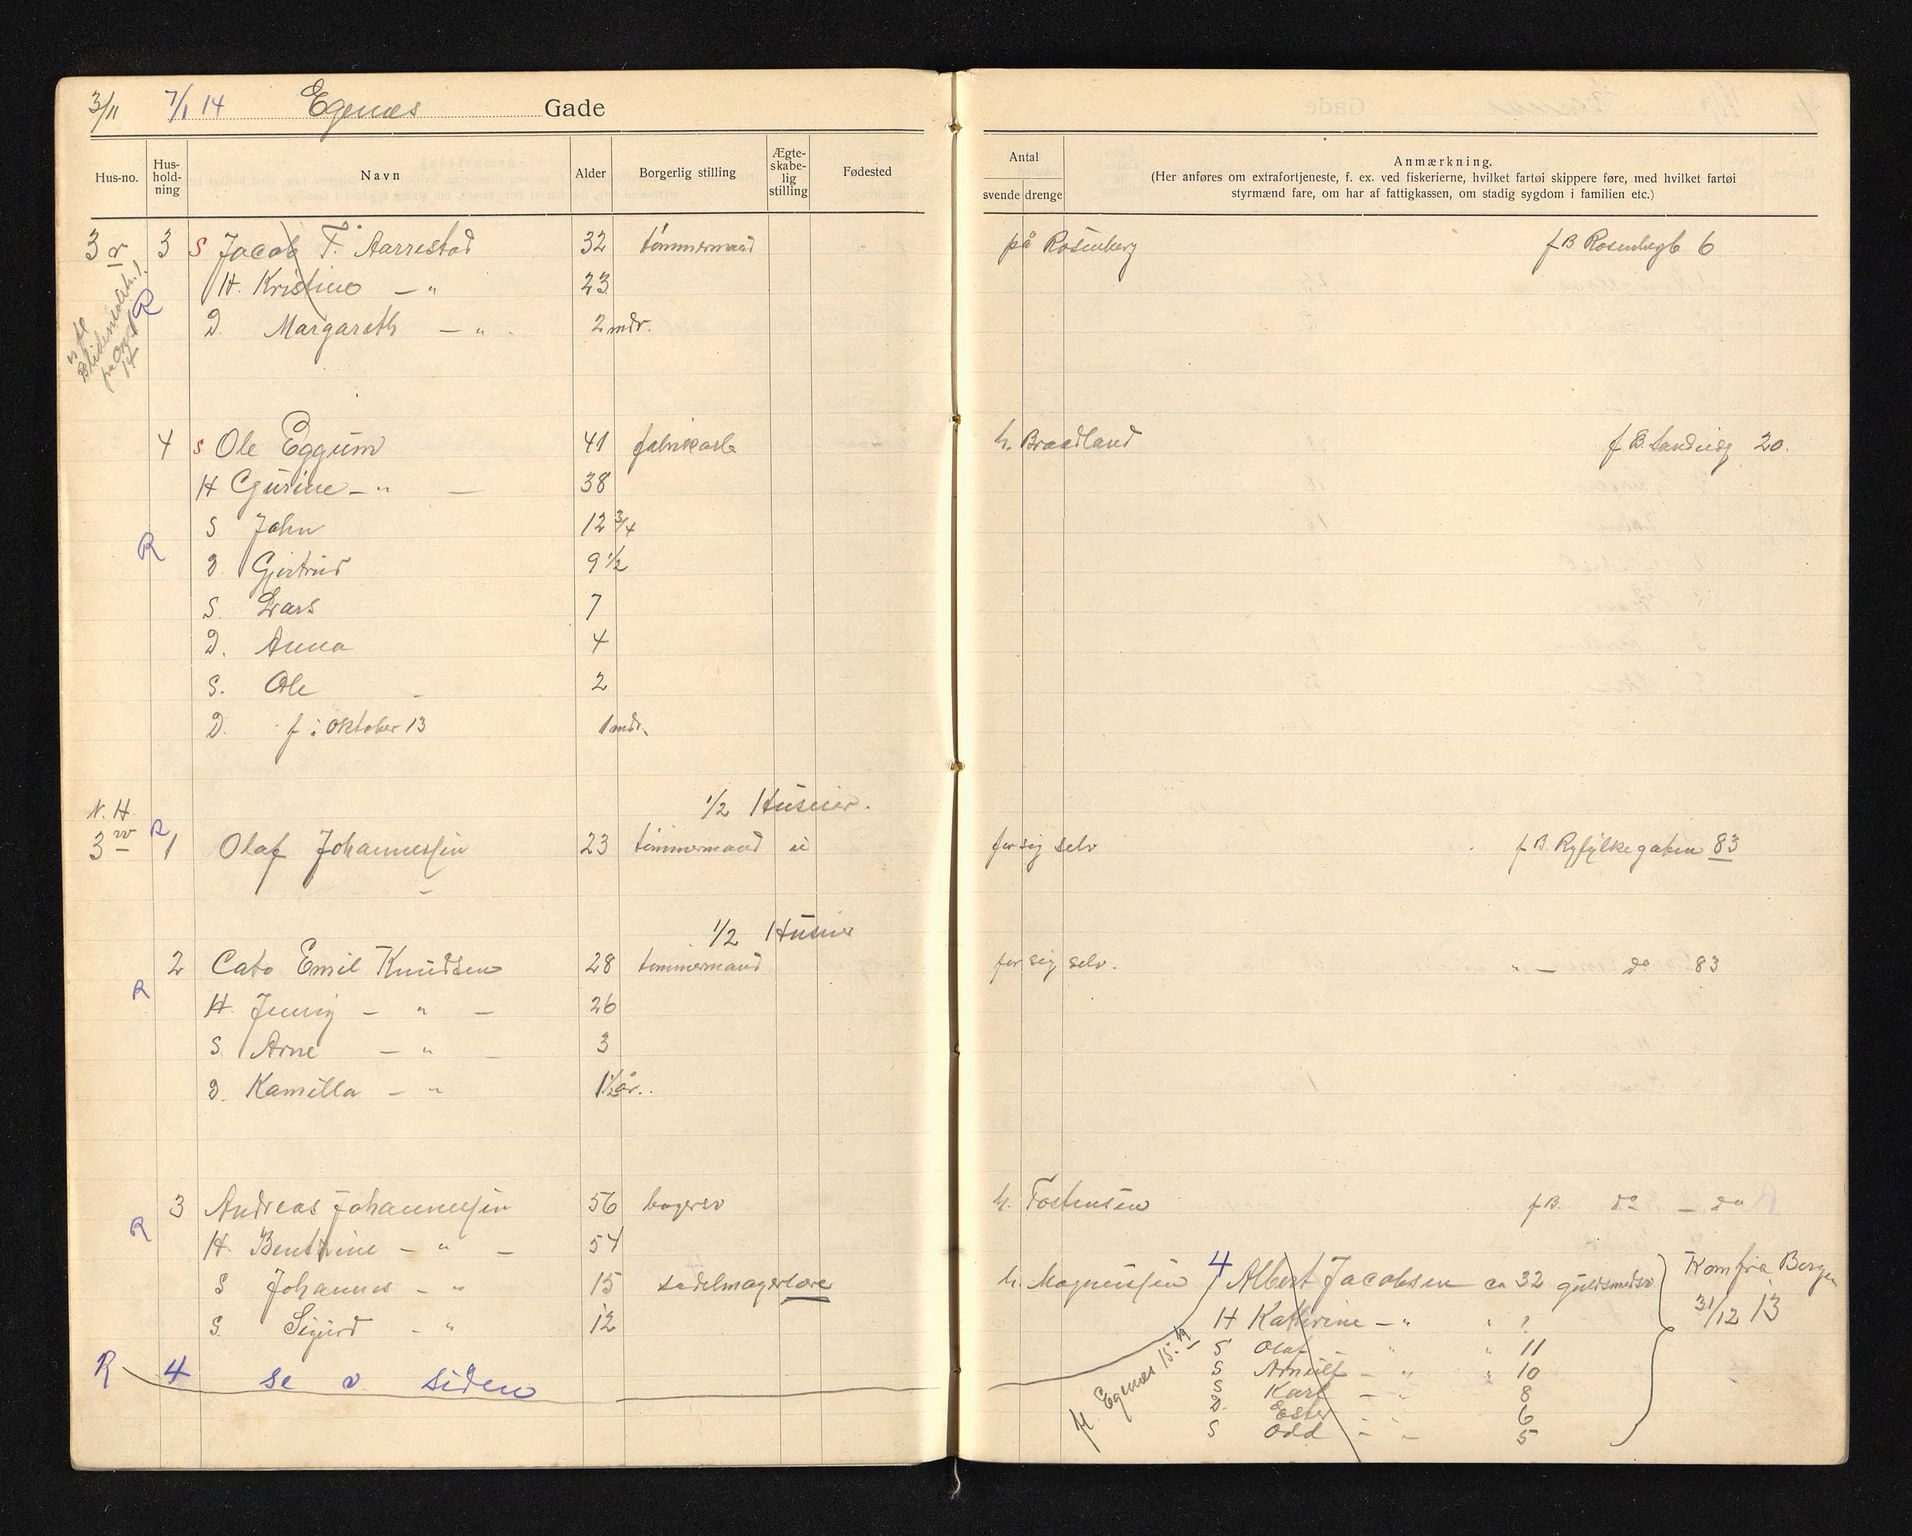 3/11 7/1 14 Egenæs Gade
Hus-no. Hus-hold-ning Navn Alder Borgerlig stilling Ægte-skabe-lig stilling Fødested
Antal
svende drenge
Anmærkning.
(Her anføres om extrafortjeneste, f. ex. ved fiskerierne, hvilket fartøi skippere føre, med hvilket fartøi
styrmænd fare, om har af fattigkassen, om stadig sygdom i familien etc.)
3 v 3 S Jacob T. Aarrestad 32 tømmermand på Rosenberg f B Rosenbgt 6
H. Kristine — " 23
R
D. Margareth — " 2 mdr.
4 S Ole Eggum 41 fabrikarb h. Braadland f B. Sandvig 20.
H Gurine — " — 38
S John 12 3/4
R D. Gjertrud 9 1/2
S. Lars 7
D. Anna 4
S. Ole 2
D. f i oktober 13 1 mdr.
N. H 1/2 Huseier.
3 vv R 1 Olaf Johannessen 23 tømmermand u for sig selv f B. Ryfylkegaten 83
1/2 Huseier
2 Cato Emil Knudsen 28 tømmermand for sig selv. " — do 83
R H. Jenny — " — 26
S. Arne — " — 3
D. Kamilla — " 1 1/2 år.
3 Andreas Johannessen 56 bagersv h. Tostensen f B. do — do
R H. Bentine — " — 54
S Johannes — " 15 sadelmagerlære h. Magnussen 4 Albert Jacobsen ca 32 guldsmedsv Kom fra Bergen
31/12 13
S. Sigurd — " 12 H Kathrine — " " ?
S Olaf — " " 11
R 4 se v. siden fl. Egenæs 15 S Arnulf — " " 10
S Karl — " 8
D. Ester 6
S Odd — " 5